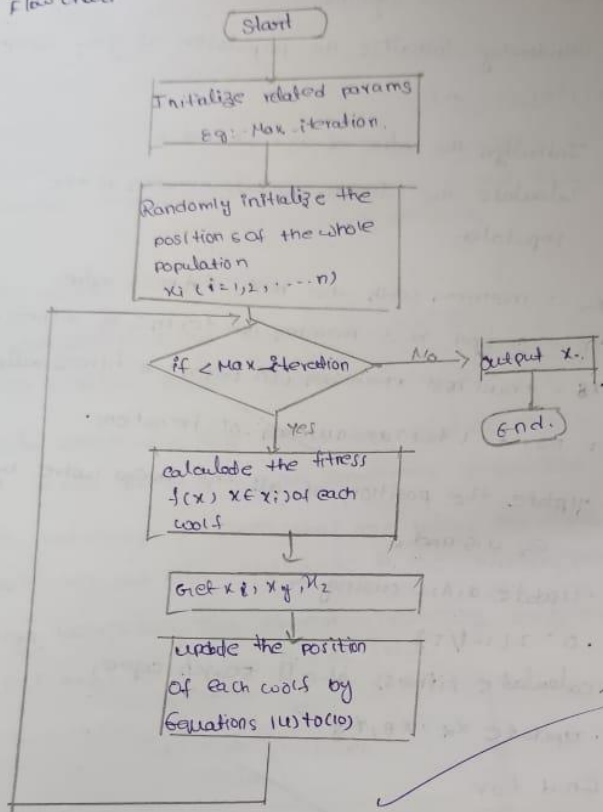 Start
Initialize related params
Eg:- Max-iteration.
Randomly initialize the
positions of the whole
population
xi (i=1,2,.....n)
if < Max_iteration
No
output x..
End.
Yes
calculate the fitness
f(x) x∈xi) of each
woolf
Get
update the position
of each woolf by
Equations